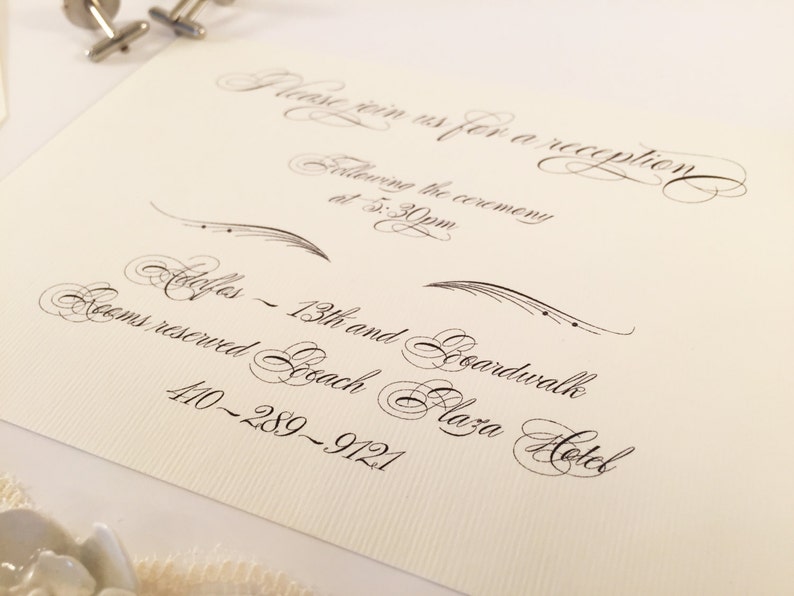 Please join us for a reception
Following the ceremony
at 5:30pm
Adolfos ~ 13th and Boardwalk
Rooms reserved Beach Plaza Hotel
410~289~9121